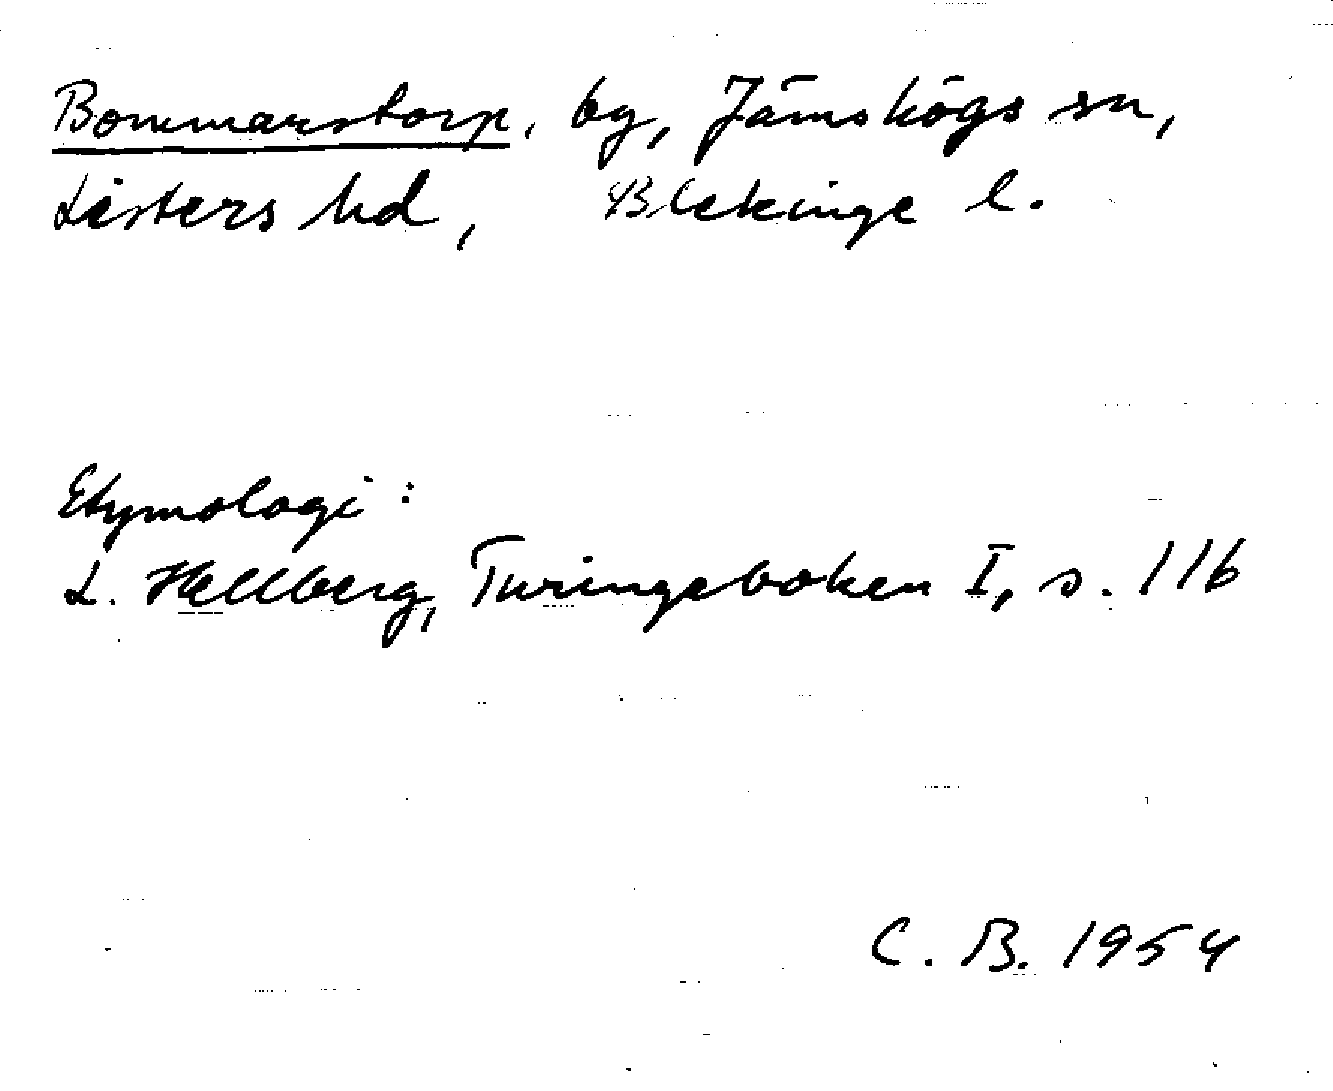 Bommarstorp, by, Jämshögs sn,
Listers hd, Blekinge l.
Etymologi:
L. Hellberg, Turingeboken I, s. 116
C. B. 1954